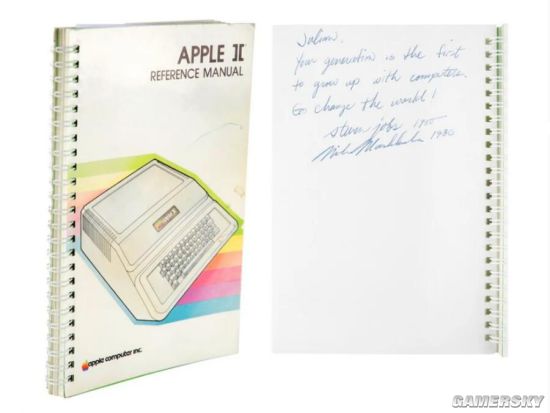 APPLE ][
REFERENCE MANUAL
apple computer inc.
Julian,
Your generation is the first
to grow up with computers.
Go change the world!
steven jobs 1980
Mike Markkula 1980
GAMERSKY